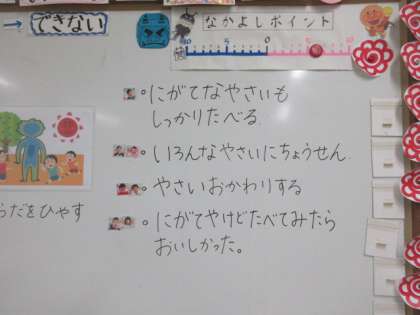 → できない
なかよしポイント
10 5 0 5 10
。にがてなやさいも
しっかりたべる
。いろんなやさいにちょうせん
。やさいおかわりする
。にがてやけどたべてみたら
おいしかった。
らだをひやす